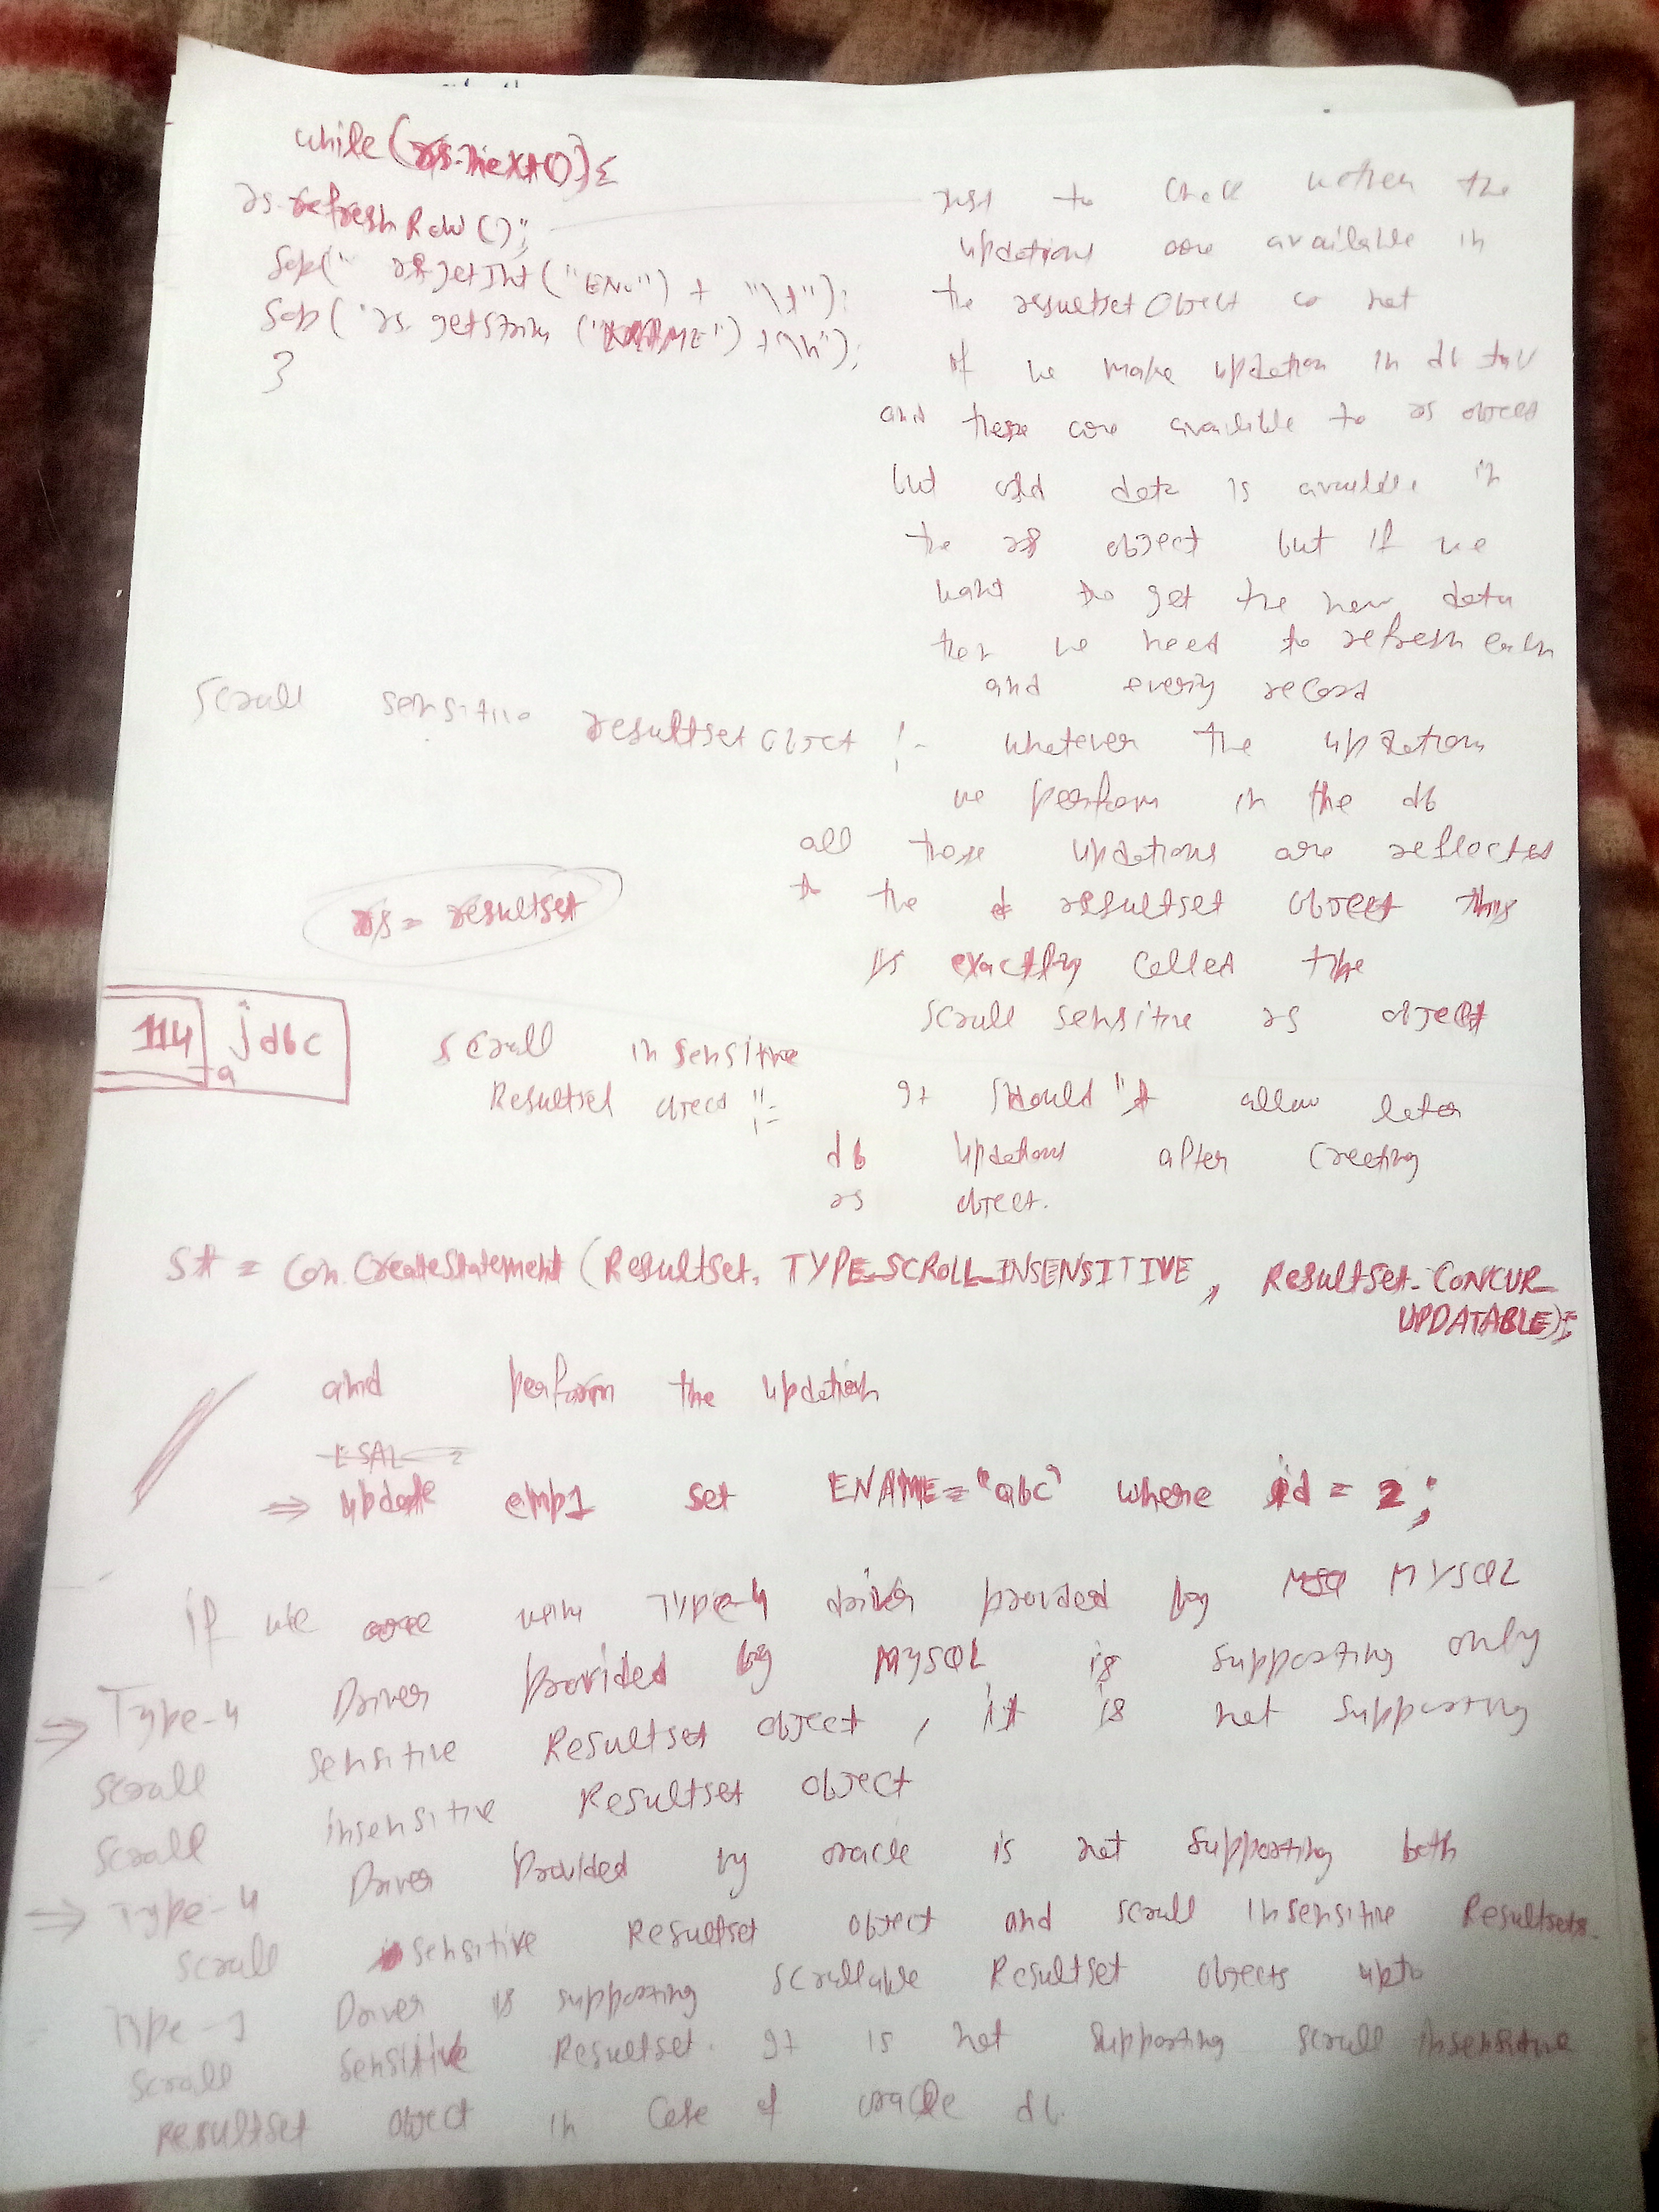 while(rs.next()){
rs.refreshRow();
Sop(" rs.getInt("ENo") + "\t");
Sop("rs.getString ("ENAME") +"\n");
}
Just to check wether the
updations are available in
the resultset Object or not
if we make updation in db tab
and these are available to rs object
but old data is available in
the rs object but if we
want to get the new data
then we need to refresh each
and every record
Scroll sensitive resultset object :- whatever the updations
we perform in the db
all those updations are reflected
to the resultset object this
is exactly called the
scroll sensitive rs object
rs = resultset
114 a jdbc
scroll insensitive
Resultset object :- It should't allow later
db updations after creating
rs object.
st = con.createStatement (ResultSet. TYPE_SCROLL_INSENSITIVE , ResultSet.CONCUR_
UPDATABLE);
and perform the updation
ESAL = 2
⇒ update emp1 set ENAME="abc" where id = 2;
if we are using Type-4 driver provided by MYSQL
⇒ Type-4 Driver provided by MySQL is supporting only
scroll sensitive Resultset object, it is not supporting
scroll insensitive Resultset object
⇒ Type-4 Driver Provided by oracle is not supporting both
scroll sensitive Resultset object and scroll insensitive Resultsets.
Type-1 Driver is supporting scrollable Resultset objects upto
scroll sensitive Resultset. It is not supporting scroll insensitive
resultset object in case of oracle db.